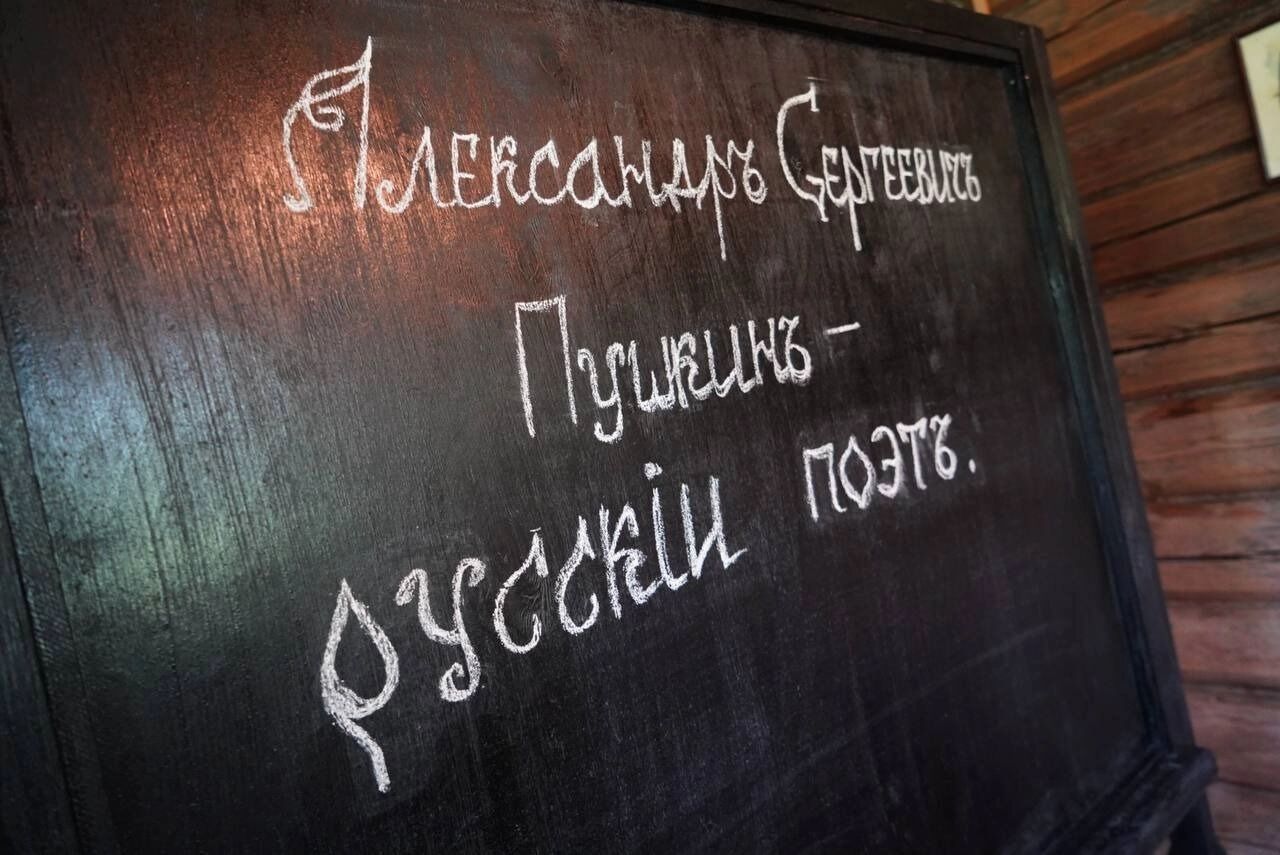 Александръ Сергеевичъ
Пушкинъ –
русскiи поэтъ.